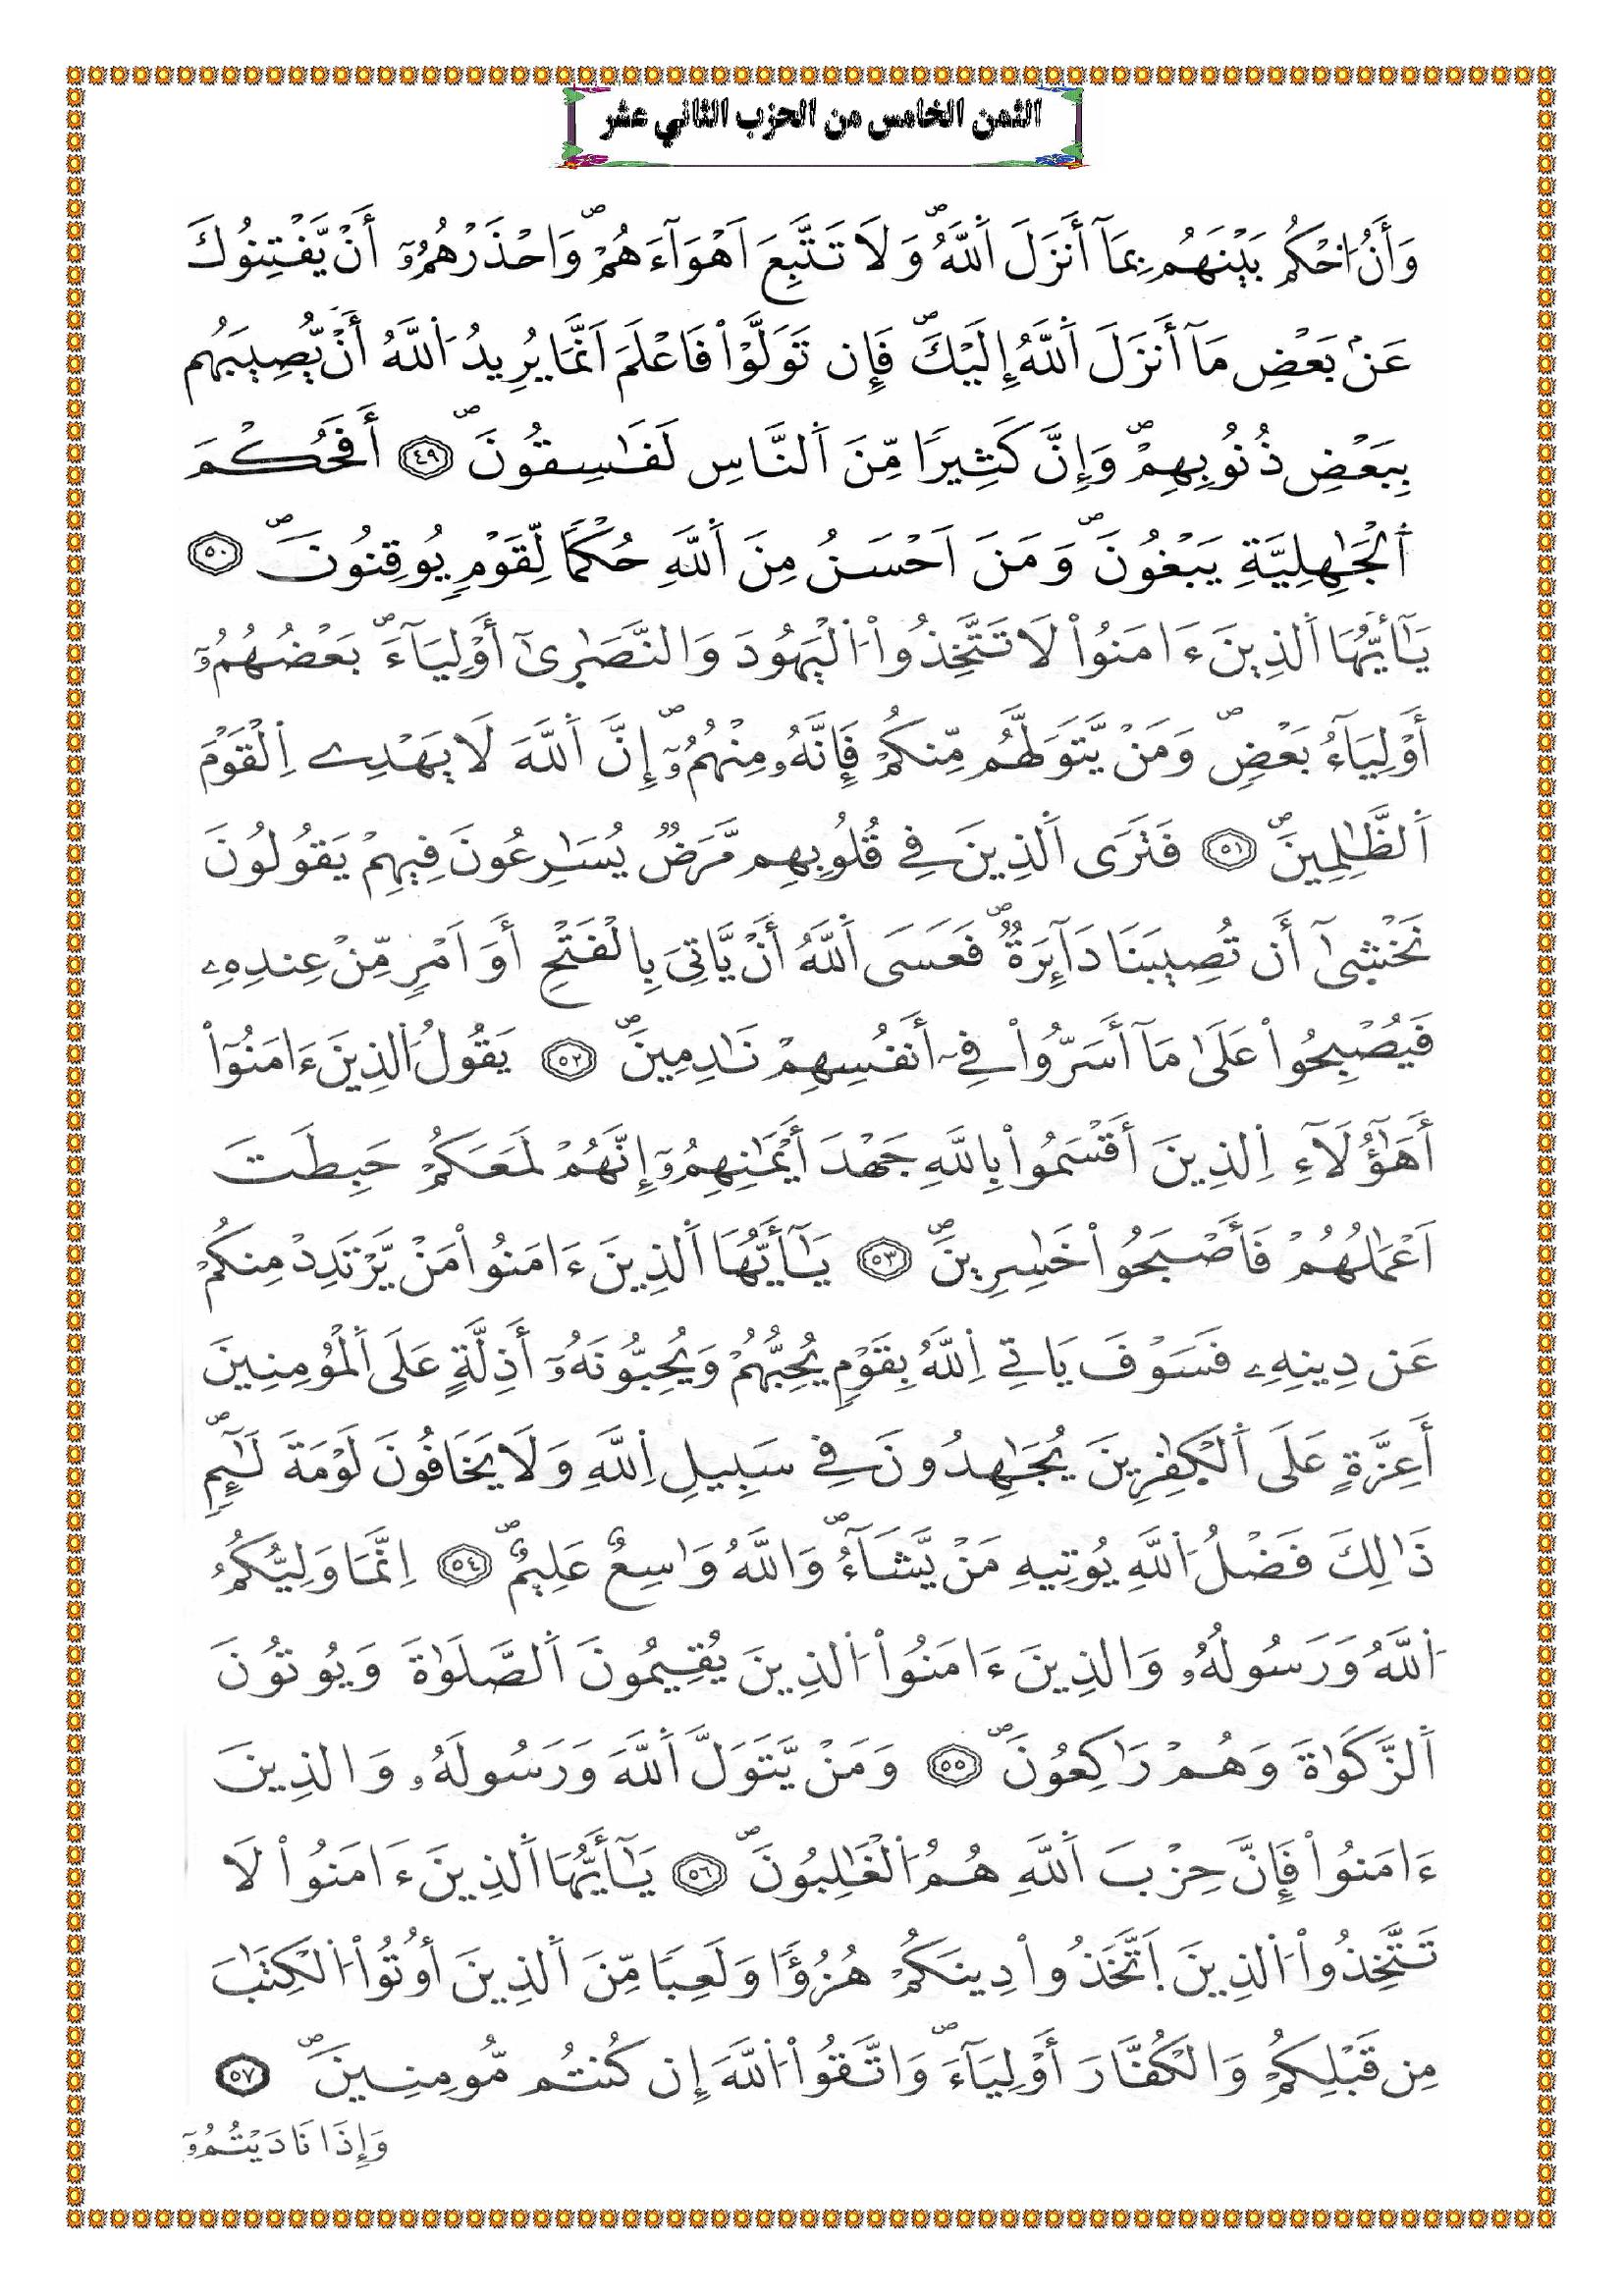 الثمن الخامس من الحزب الثاني عشر
وَأَنُ اٰحْكُم بَيْنَهُم بِمَآ أَنزَلَ اَ۬للَّهُۖ وَلَا تَتَّبِعَ اَهْوَآءَهُمْۖ وَاحْذَرْهُمُۥٓ أَنْ يَّفْتِنُوكَ
عَنۢ بَعْضِ مَآ أَنزَلَ اَ۬للَّهُ إِلَيْكَۖ فَإِن تَوَلَّوْاْ فَاعْلَمَ اَنَّمَا يُرِيدُ اُ۬للَّهُ أَنْ يُّصِيبَهُم
بِبَعْضِ ذُنُوبِهِمْۖ وَإِنَّ كَثِيراٗ مِّنَ اَ۬لنَّاسِ لَفَٰسِقُونَۖ ٤٩ أَفَحُكْمَ
اَ۬لْجَٰهِلِيَّةِ يَبْغُونَۖ وَمَنَ اَحْسَنُ مِنَ اَ۬للَّهِ حُكْماٗ لِّقَوْمٖ يُوقِنُونَۖ ٥٠
يَٰٓأَيُّهَا اَ۬لذِينَ ءَامَنُواْ لَا تَتَّخِذُواْ اُ۬لْيَهُودَ وَالنَّصَٰرِىٰٓ أَوْلِيَآءَۖ بَعْضُهُمُۥٓ
أَوْلِيَآءُ بَعْضٖۖ وَمَنْ يَّتَوَلَّهُم مِّنكُمْ فَإِنَّهُۥ مِنْهُمُۥٓۖ إِنَّ اَ۬للَّهَ لَا يَهْدِے اِ۬لْقَوْمَ
اَ۬لظَّٰلِمِينَۖ ٥١ فَتَرَى اَ۬لذِينَ فِے قُلُوبِهِم مَّرَضٞ يُسَٰرِعُونَ فِيهِمْ يَقُولُونَ
نَخْشَىٰٓ أَن تُصِيبَنَا دَآئِرَةٞۖ فَعَسَى اَ۬للَّهُ أَنْ يَّاتِيَ بِالْفَتْحِ أَوَ اَمْرٖ مِّنْ عِندِهِۦ
فَيُصْبِحُواْ عَلَىٰ مَآ أَسَرُّواْ فِےٓ أَنفُسِهِمْ نَٰدِمِينَۖ ٥٢ يَقُولُ اُ۬لذِينَ ءَامَنُوٓاْ
أَهَٰٓؤُلَآءِ اِ۬لذِينَ أَقْسَمُواْ بِاللَّهِ جَهْدَ أَيْمَٰنِهِمُۥٓ إِنَّهُمْ لَمَعَكُمْ حَبِطَتَ
اَعْمَٰلُهُمْ فَأَصْبَحُواْ خَٰسِرِينَۖ ٥٣ يَٰٓأَيُّهَا اَ۬لذِينَ ءَامَنُواْ مَنْ يَّرْتَدِدْ مِنكُمْ
عَن دِينِهِۦ فَسَوْفَ يَاتِے اِ۬للَّهُ بِقَوْمٖ يُحِبُّهُمْ وَيُحِبُّونَهُۥٓ أَذِلَّةٍ عَلَى اَ۬لْمُومِنِينَ
أَعِزَّةٍ عَلَى اَ۬لْكٰ۪فِرِينَ يُجَٰهِدُونَ فِے سَبِيلِ اِ۬للَّهِ وَلَا يَخَافُونَ لَوْمَةَ لَآئِمٖۖ
ذَٰلِكَ فَضْلُ اُ۬للَّهِ يُوتِيهِ مَنْ يَّشَآءُۖ وَاللَّهُ وَٰسِعٌ عَلِيمٌۖ ٥٤ اِنَّمَا وَلِيُّكُمُ
اُ۬للَّهُ وَرَسُولُهُۥ وَالذِينَ ءَامَنُواْ اُ۬لذِينَ يُقِيمُونَ اَ۬لصَّلَوٰةَ وَيُوتُونَ
اَ۬لزَّكَوٰةَ وَهُمْ رَٰكِعُونَۖ ٥٥ وَمَنْ يَّتَوَلَّ اَ۬للَّهَ وَرَسُولَهُۥ وَالذِينَ
ءَامَنُواْ فَإِنَّ حِزْبَ اَ۬للَّهِ هُمُ اُ۬لْغَٰلِبُونَۖ ٥٦ يَٰٓأَيُّهَا اَ۬لذِينَ ءَامَنُواْ لَا
تَتَّخِذُواْ اُ۬لذِينَ اَ۪تَّخَذُواْ دِينَكُمْ هُزُؤاٗ وَلَعِباٗ مِّنَ اَ۬لذِينَ أُوتُواْ اُ۬لْكِتَٰبَ
مِن قَبْلِكُمْ وَالْكُفَّارَ أَوْلِيَآءَۖ وَاتَّقُواْ اُ۬للَّهَ إِن كُنتُم مُّومِنِينَۖ ٥٧
وَإِذَا نَادَيْتُمُۥٓ